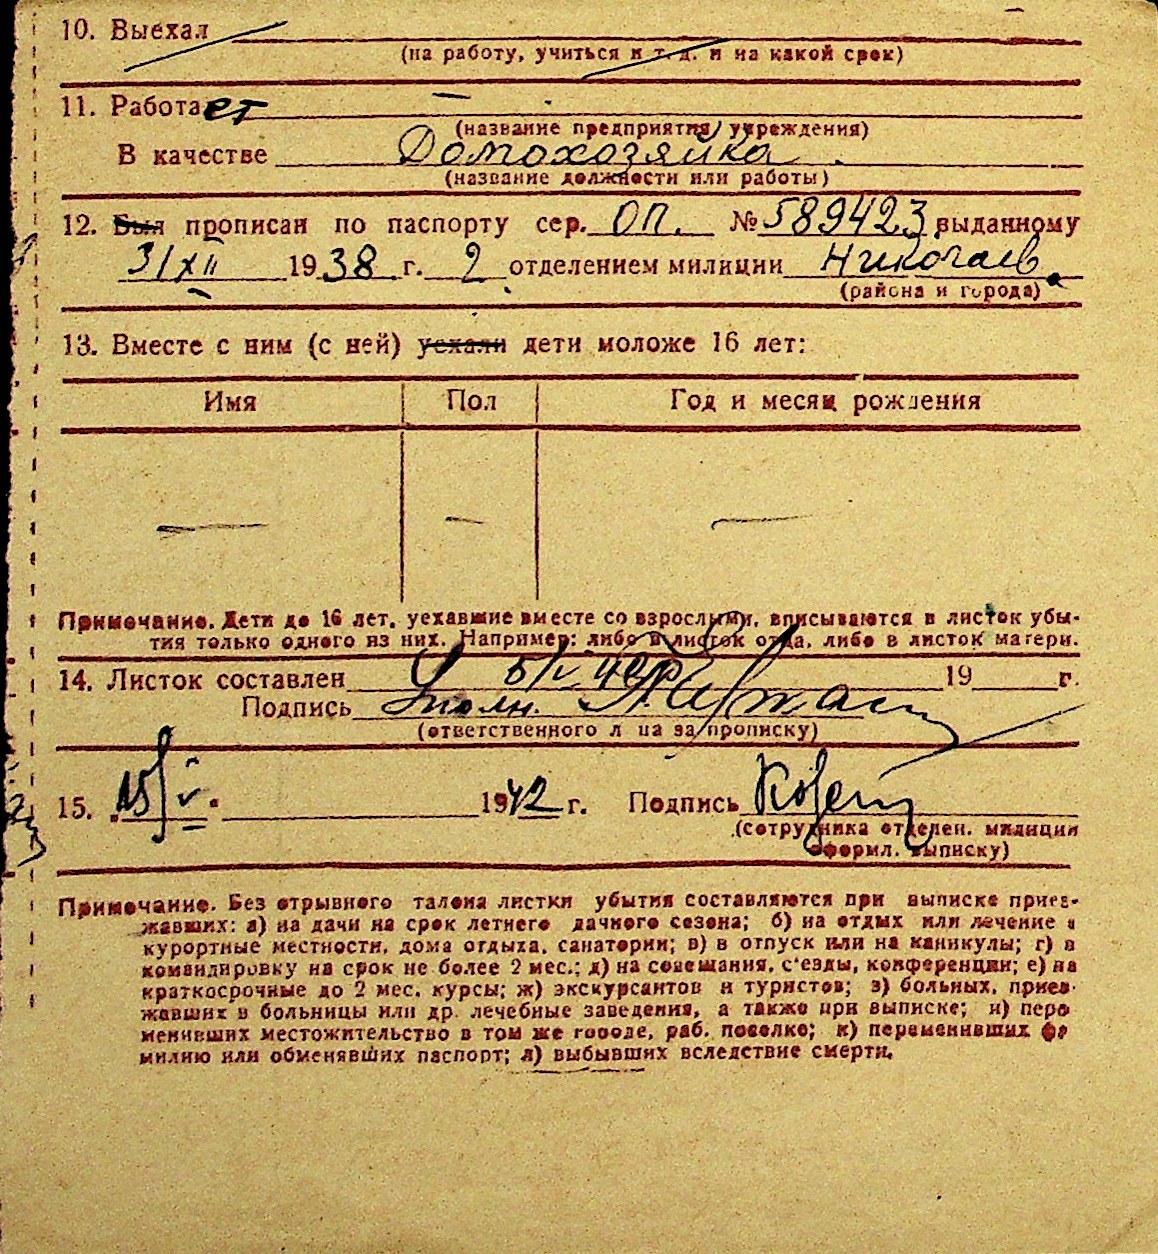 10. Выехал
(на работу, учиться и т. д. и на какой срок)
11. Работает
(название предприятия, учреждения)
В качестве Домохозяйка
(название должности или работы)
12. Был прописан по паспорту сер. ОП. № 589423 выданному
31/XII 1938 г. 2 отделением милиции Николаев.
(района и города)
13. Вместе с ним (с ней) уехали дети моложе 16 лет:
Имя Пол Год и месяц рождения
— — —
Примечание. Дети до 16 лет, уехавшие вместе со взрослыми, вписываются в листок убы-
тия только одного из них. Например: либо в листок отца, либо в листок матери.
14. Листок составлен 19 г.
Подпись
(ответственного лица за прописку)
15. 15/V 1942 г. Подпись
(сотрудника отделен. милиции
оформл. выписку)
Примечание. Без отрывного талона листки убытия составляются при выписке приез-
жавших: а) на дачи на срок летнего дачного сезона; б) на отдых или лечение в
курортные местности, дома отдыха, санатории; в) в отпуск или на каникулы; г) в
командировку на срок не более 2 мес.; д) на совещания, с'езды, конференции; е) на
краткосрочные до 2 мес. курсы; ж) экскурсантов и туристов; з) больных, приез-
жавших в больницы или др. лечебные заведения, а также при выписке; и) пере
менивших местожительство в том же городе, раб. поселке; к) переменивших фа
милию или обменявших паспорт; л) выбывших вследствие смерти.